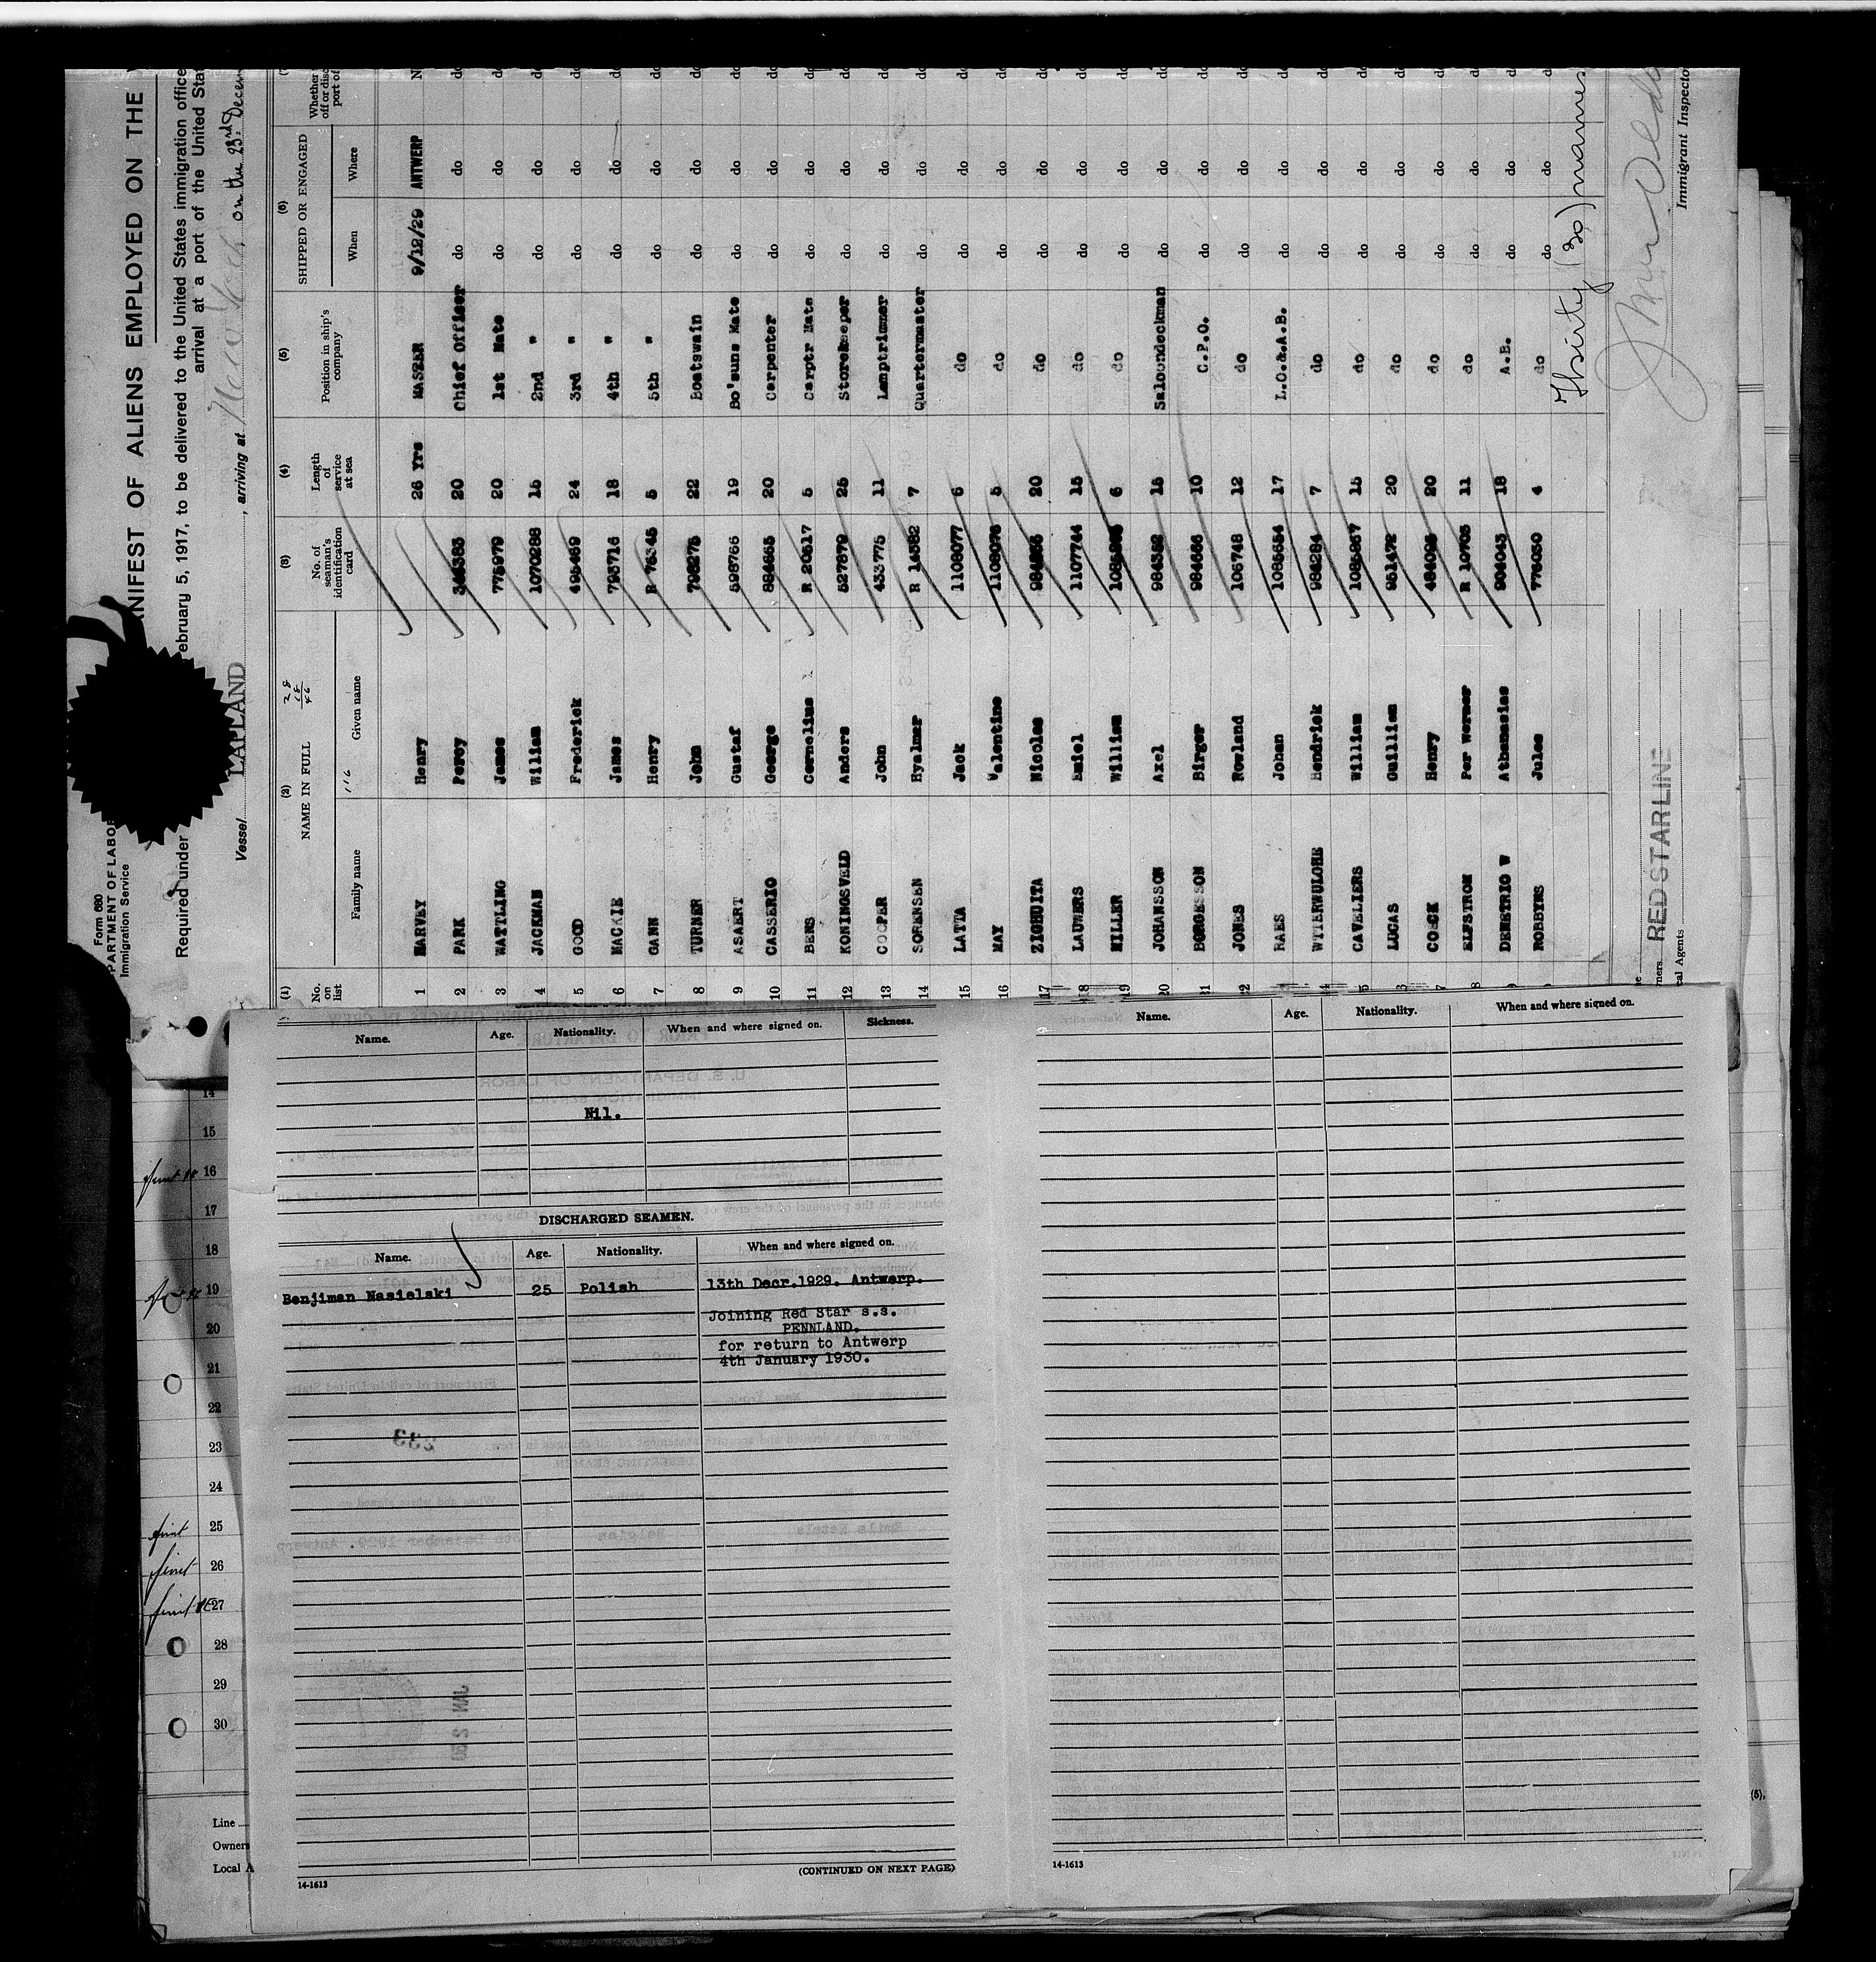 Form 680
PARTMENT OF LABOR
Immigration Service
ANIFEST OF ALIENS EMPLOYED ON THE
Required under
ebruary 5, 1917, to be delivered to the United States immigration office
arrival at a port of the United Stat
Vessel LAPLAND, arriving at New York, on the 23rd Decem
(1) (2) (3) (4) (5) (6)
No. on list NAME IN FULL No. of seaman's identification card Length of service at sea Position in ship's company SHIPPED OR ENGAGED Whether
Family name Given name When Where
28
18
46
116
1 HARVEY Henry 26 Yrs MASTER 9/12/29 ANTWERP N
2 PARK Percy 344383 20 Chief Officer do do do
3 WATTLING James 775979 20 1st Mate do do do
4 JACKMAN William 1070288 15 2nd " do do do
5 GOOD Frederick 495469 24 3rd " do do do
6 MACKIE James 793716 18 4th " do do do
7 GANN Henry R 76345 5 5th " do do do
8 TURNER John 798275 22 Boatswain do do do
9 ASAERT Gustaf 598766 19 Bo'suns Mate do do do
10 CASSERIO George 884665 20 Carpenter do do do
11 BENS Cornelius R 20517 5 Carptr Mate do do do
12 KONINGSVELD Anders 527879 25 Storekeeper do do do
13 COOPER John 433775 11 Lamptrimmer do do do
14 SORENSEN Hyalmar R 14382 7 Quartermaster do do do
15 LATTA Jack 1108077 6 do do do do
16 MAY Valentine 1108076 5 do do do do
17 ZIGHUITA Nicolas 20 do do do do
18 LAUWERS Emiel 1107744 15 do do do do
19 MILLER William 6 do do do do
20 JOHANSSON Axel 984382 15 Saloondeckman do do do
21 BORGESSON Birger 984666 10 C.P.O. do do do
22 JONES Rowland 106748 12 do do do do
RAES Johan 1085654 17 L.O.&.A.B. do do do
WYTERWULGHE Hendrick 984284 7 do do do do
5 CAVELIERS William 1085867 15 do do do do
LUCAS Guillien 951472 20 do do do do
7 COECK Henry 20 do do do do
8 ELFSTROM Per Werner R 10703 11 do do do do
DEMETRIO W Athanasias 904043 18 A.B. do do do
ROBBYNS Jules 776030 4 do do do do
Thirty (30) names
Immigrant Inspecto
RED STAR LINE
cal Agents
Name. Age. Nationality. When and where signed on. Sickness.
Nil.
DISCHARGED SEAMEN.
Name. Age. Nationality. When and where signed on.
Benjiman Nasielski 25 Polish 13th Decr.1929. Antwerp.
Joining Red Star s.s.
PENNLAND.
for return to Antwerp
4th January 1930.
(CONTINUED ON NEXT PAGE)
14-1613
Name. Age. Nationality. When and where signed on.
14-1613
14
15
16
17
18
19
20
21
22
23
24
25
26
27
28
29
30
Line
Owners
Local A
(5),